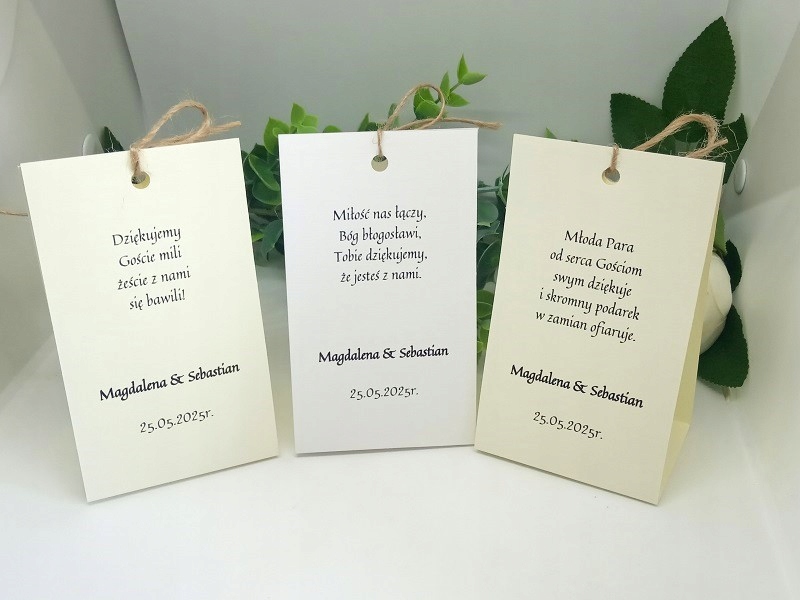 Dziękujemy
Goście mili
żeście z nami
się bawili!
Magdalena & Sebastian
25.05.2025r.
Miłość nas łączy,
Bóg błogosławi,
Tobie dziękujemy,
że jesteś z nami.
Magdalena & Sebastian
25.05.2025r.
Młoda Para
od serca Gościom
swym dziękuje
i skromny podarek
w zamian ofiaruje.
Magdalena & Sebastian
25.05.2025r.